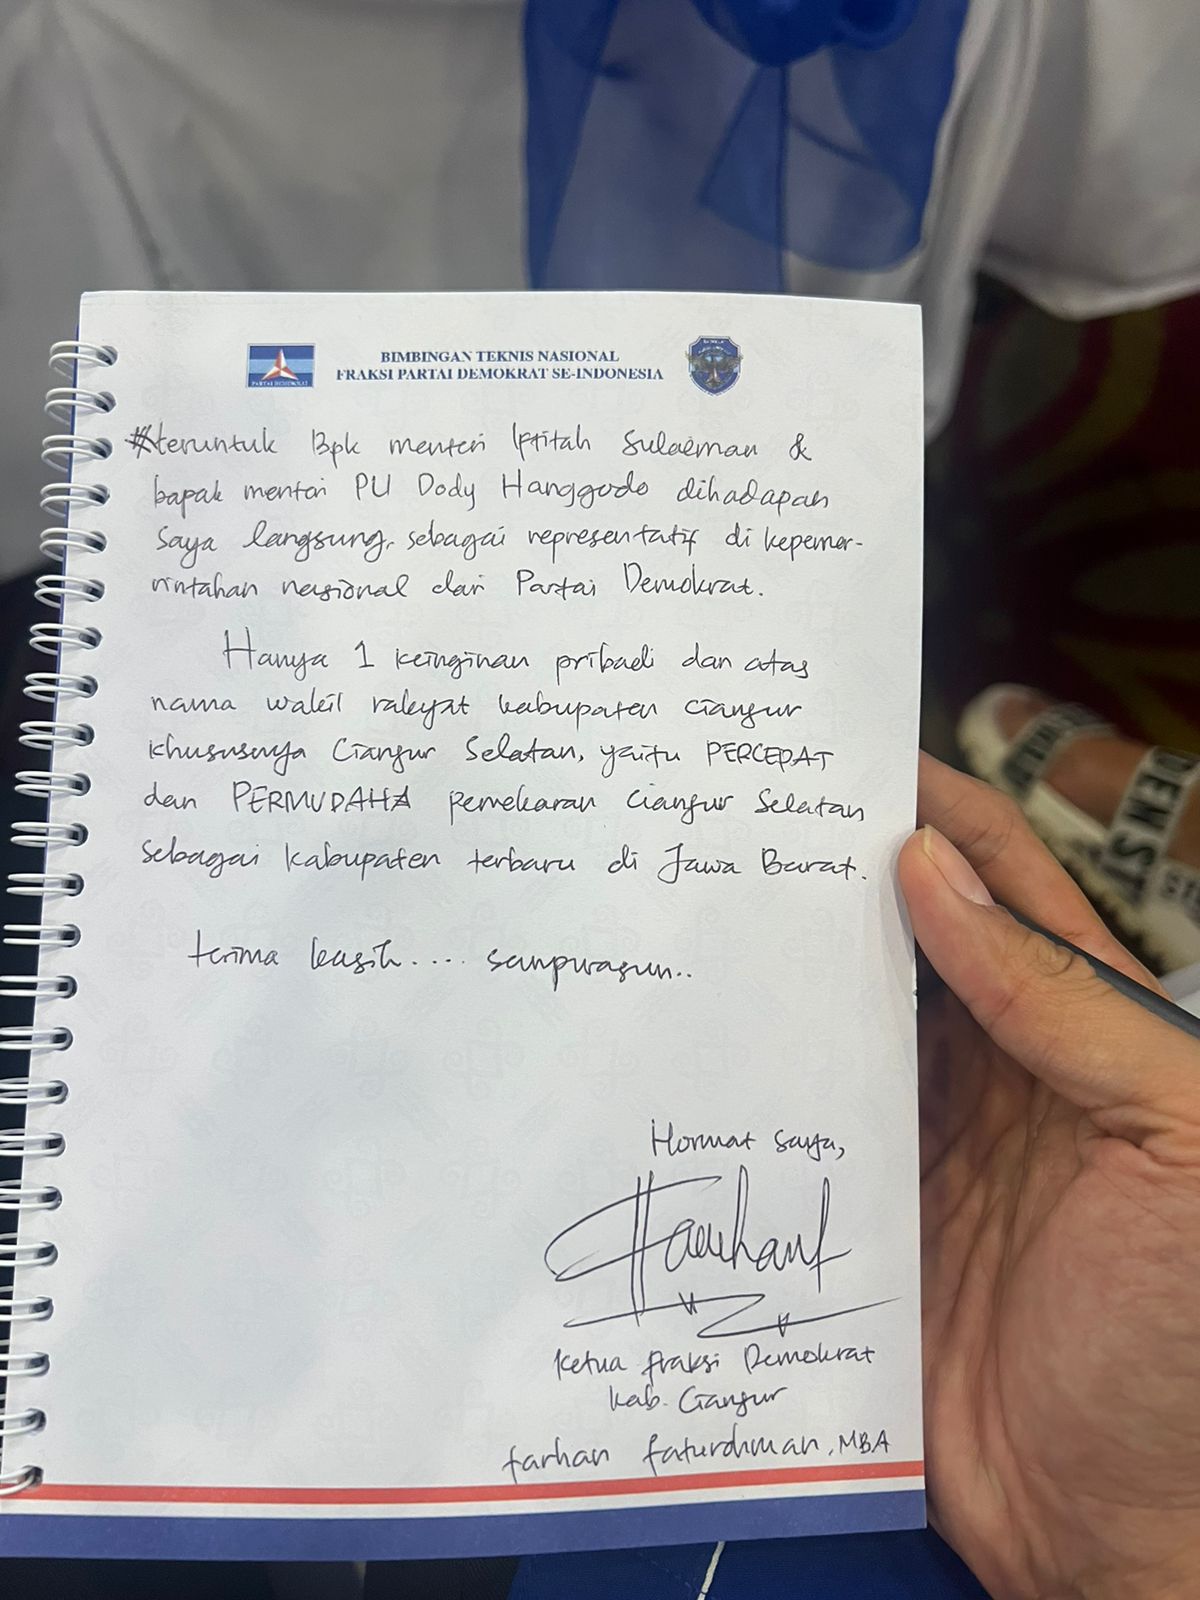 PARTAI DEMOKRAT
BIMBINGAN TEKNIS NASIONAL
FRAKSI PARTAI DEMOKRAT SE-INDONESIA
#teruntuk Bpk menteri Iftitah Sulaeman &
bapak menteri PU Dody Hanggodo dihadapan
Saya langsung, sebagai representatif di kepemer-
rintahan nasional dari Partai Demokrat.
Hanya 1 keinginan pribadi dan atas
nama wakil rakyat kabupaten cianjur
khususnya Cianjur Selatan, yaitu PERCEPAT
dan PERMUDAHA pemekaran cianjur Selatan
sebagai kabupaten terbaru di Jawa Barat.
terima kasih.... sampurasun..
Hormat saya,
Ketua fraksi Demokrat
kab. Cianjur
farhan faturohman, MBA